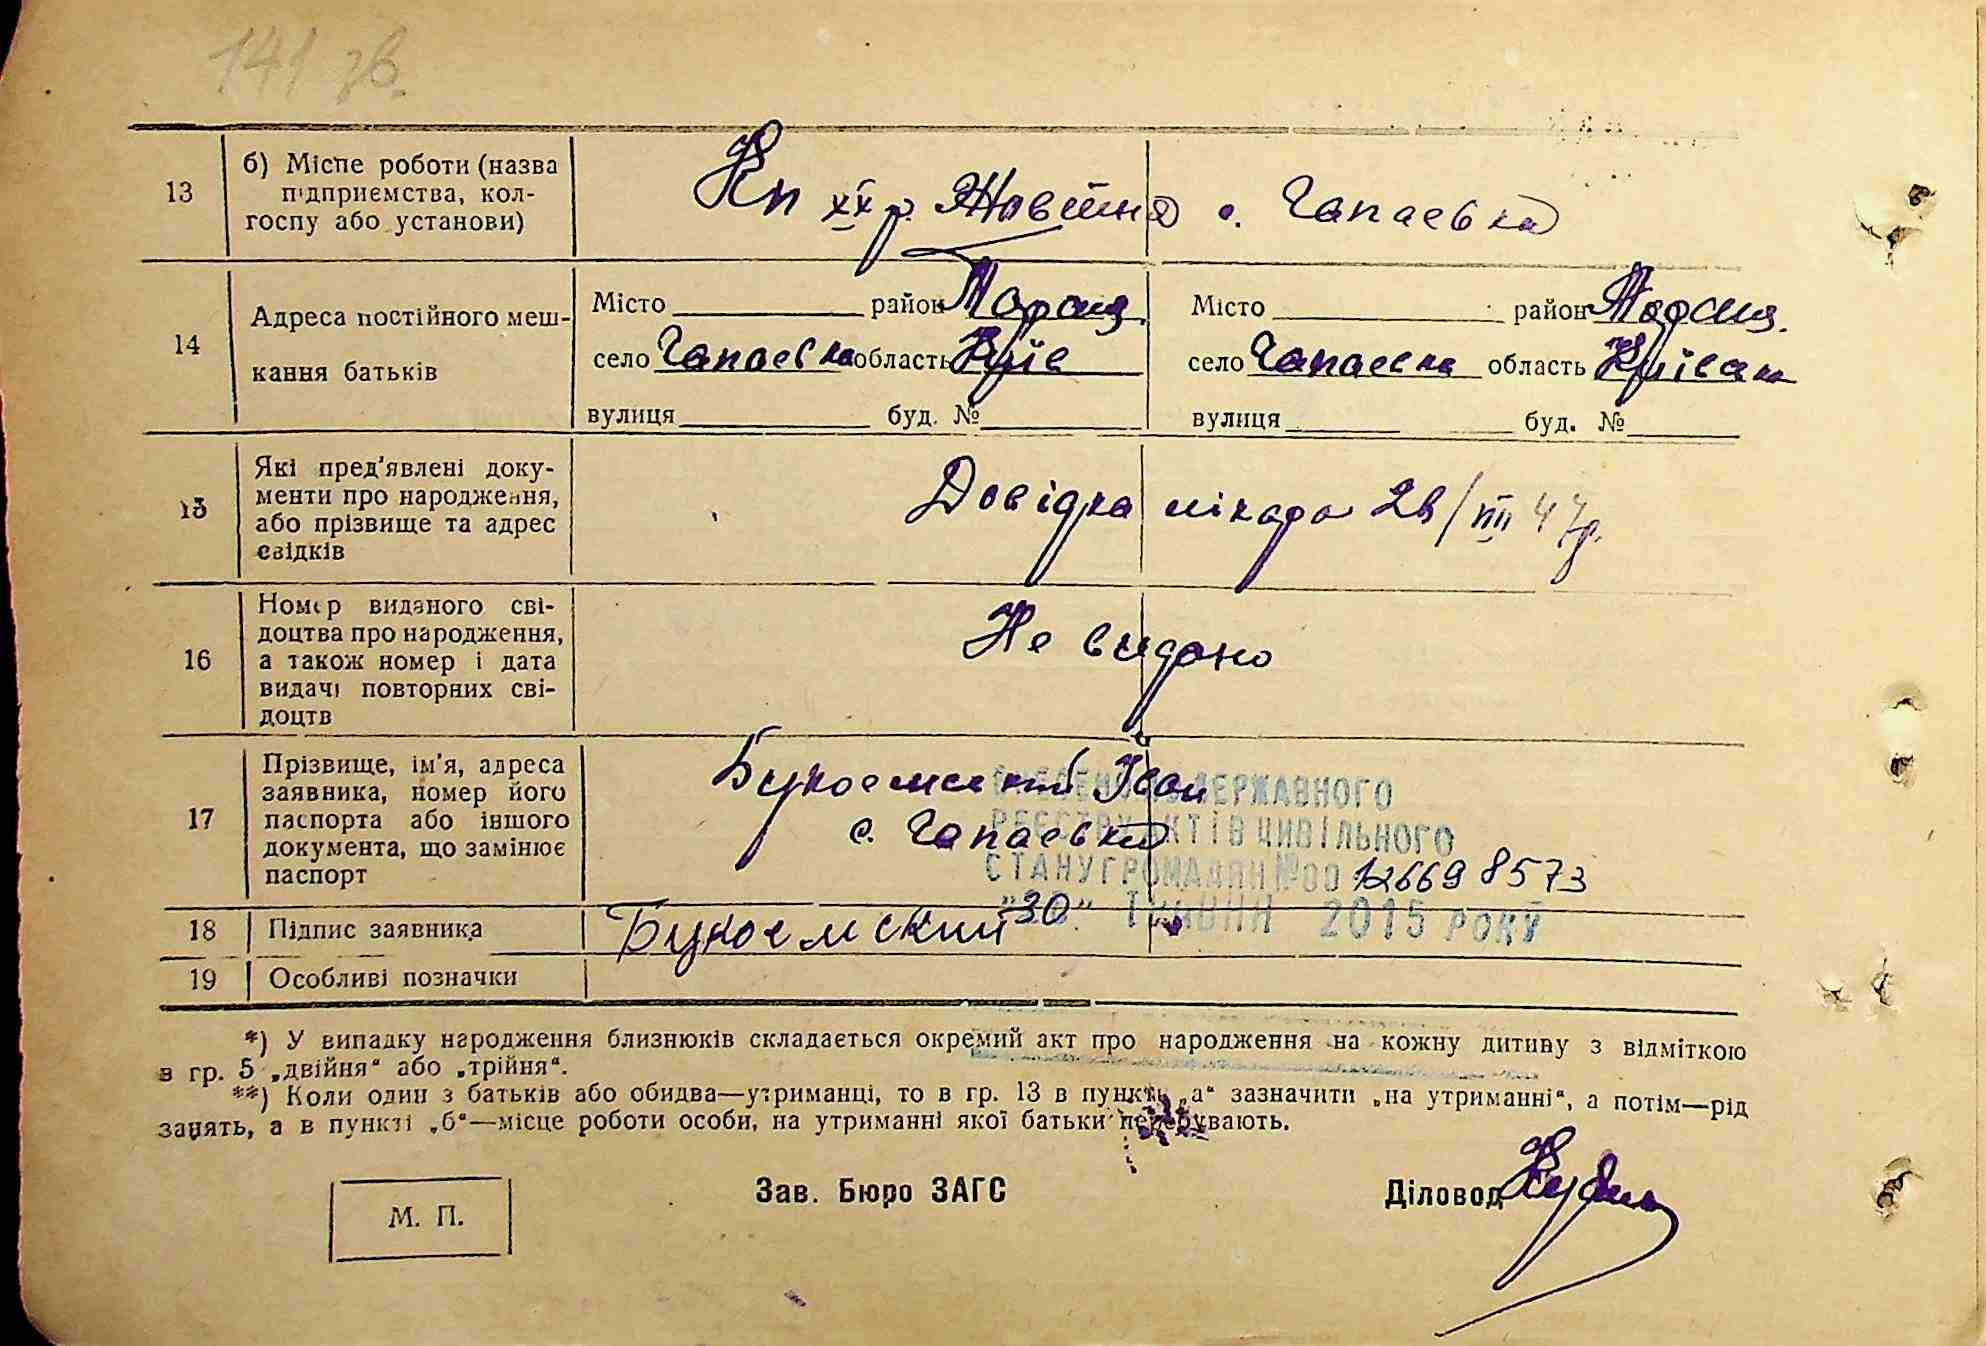 141 зв.
13
б) Місце роботи (назва
підприємства, кол-
госпу або установи)
Кп ХХ р. Жовтня с. Чапаевка
14
Адреса постійного меш-
кання батьків
Місто район Таращ.
село Чапаевка область Київ
вулиця буд. №
Місто район Таращ.
село Чапаевка область Київська
вулиця буд. №
15
Які пред'явлені доку-
менти про народження,
або прізвище та адрес
свідків
Довідка лікара 28/VII 47р.
16
Номер виданого сві-
доцтва про народження,
а також номер і дата
видачі повторних сві-
доцтв
Не видано
17
Прізвище, ім'я, адреса
заявника, номер його
паспорта або іншого
документа, що замінює
паспорт
Букоемский Іван
с. Чапаевка
ДЕРЖАВНОГО
РЕЄСТРУ АКТІВ ЦИВІЛЬНОГО
СТАНУ ГРОМАДЯН №00 126698573
"30" ТРАВНЯ 2015 РОКУ
18
Підпис заявника
Букоемский
19
Особливі позначки
*) У випадку народження близнюків складається окремий акт про народження на кожну дитину з відміткою
в гр. 5 „двійня“ або „трійня“.
**) Коли один з батьків або обидва—утриманці, то в гр. 13 в пункті „а“ зазначити „на утриманні“, а потім—рід
занять, а в пункті „б“—місце роботи особи, на утриманні якої батьки перебувають.
М. П.
Зав. Бюро ЗАГС
Діловод